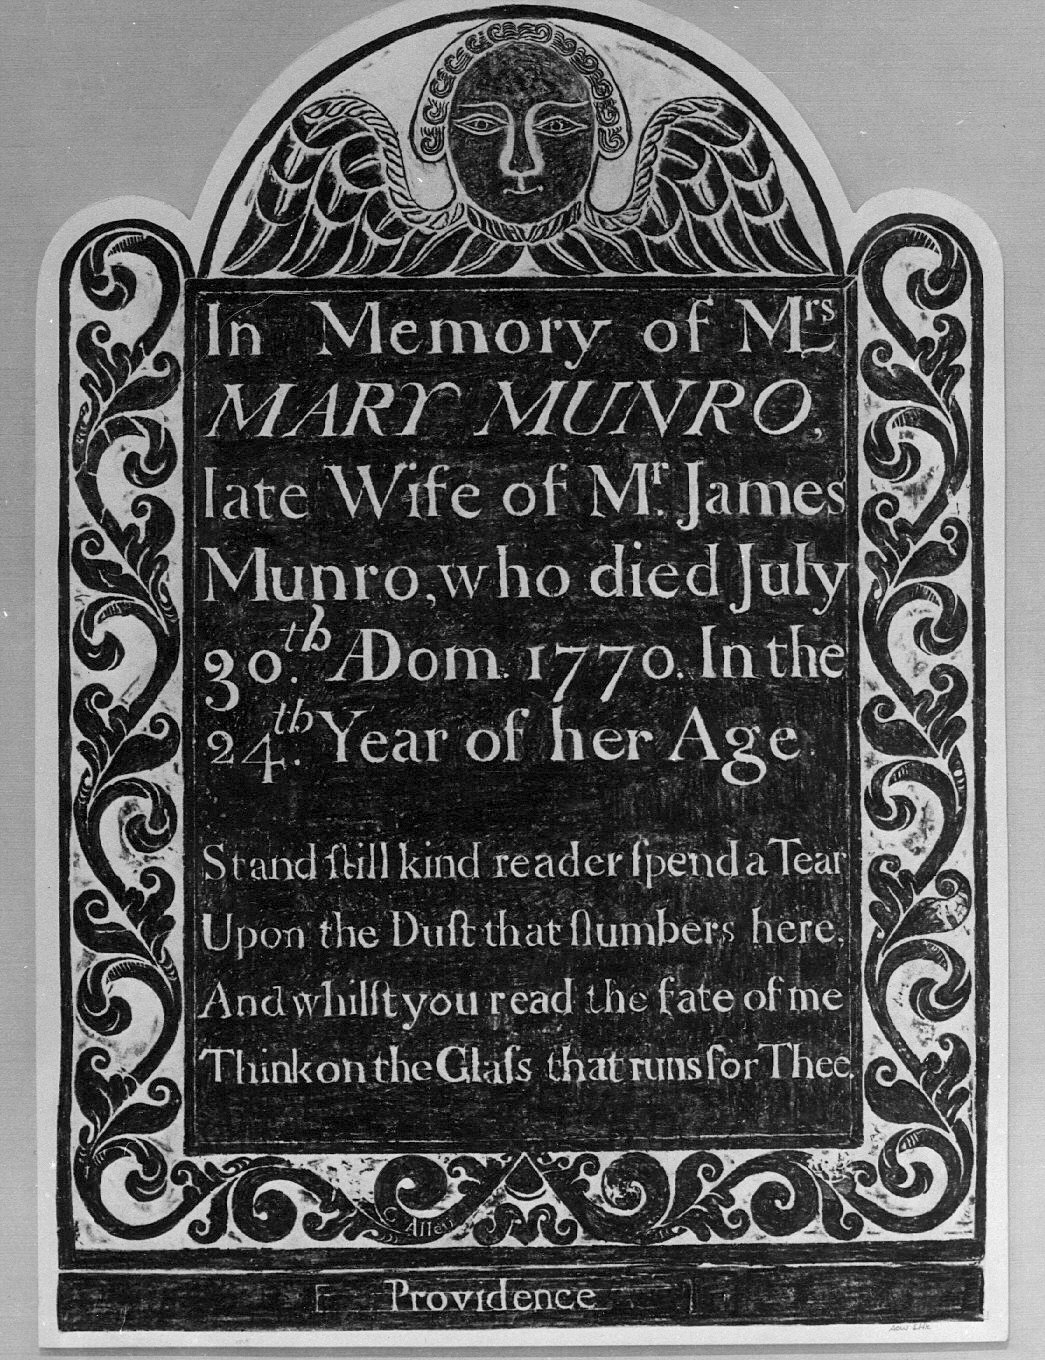 In Memory of Mrs
MARY MUNRO,
late Wife of Mr. James
Munro, who died July
30th. ADom. 1770. In the
24th. Year of her Age
Stand ſtill kind reader ſpend a Tear
Upon the Duſt that ſlumbers here,
And whilſt you read the fate of me
Think on the Glaſs that runs for Thee.
G. Allen
Providence